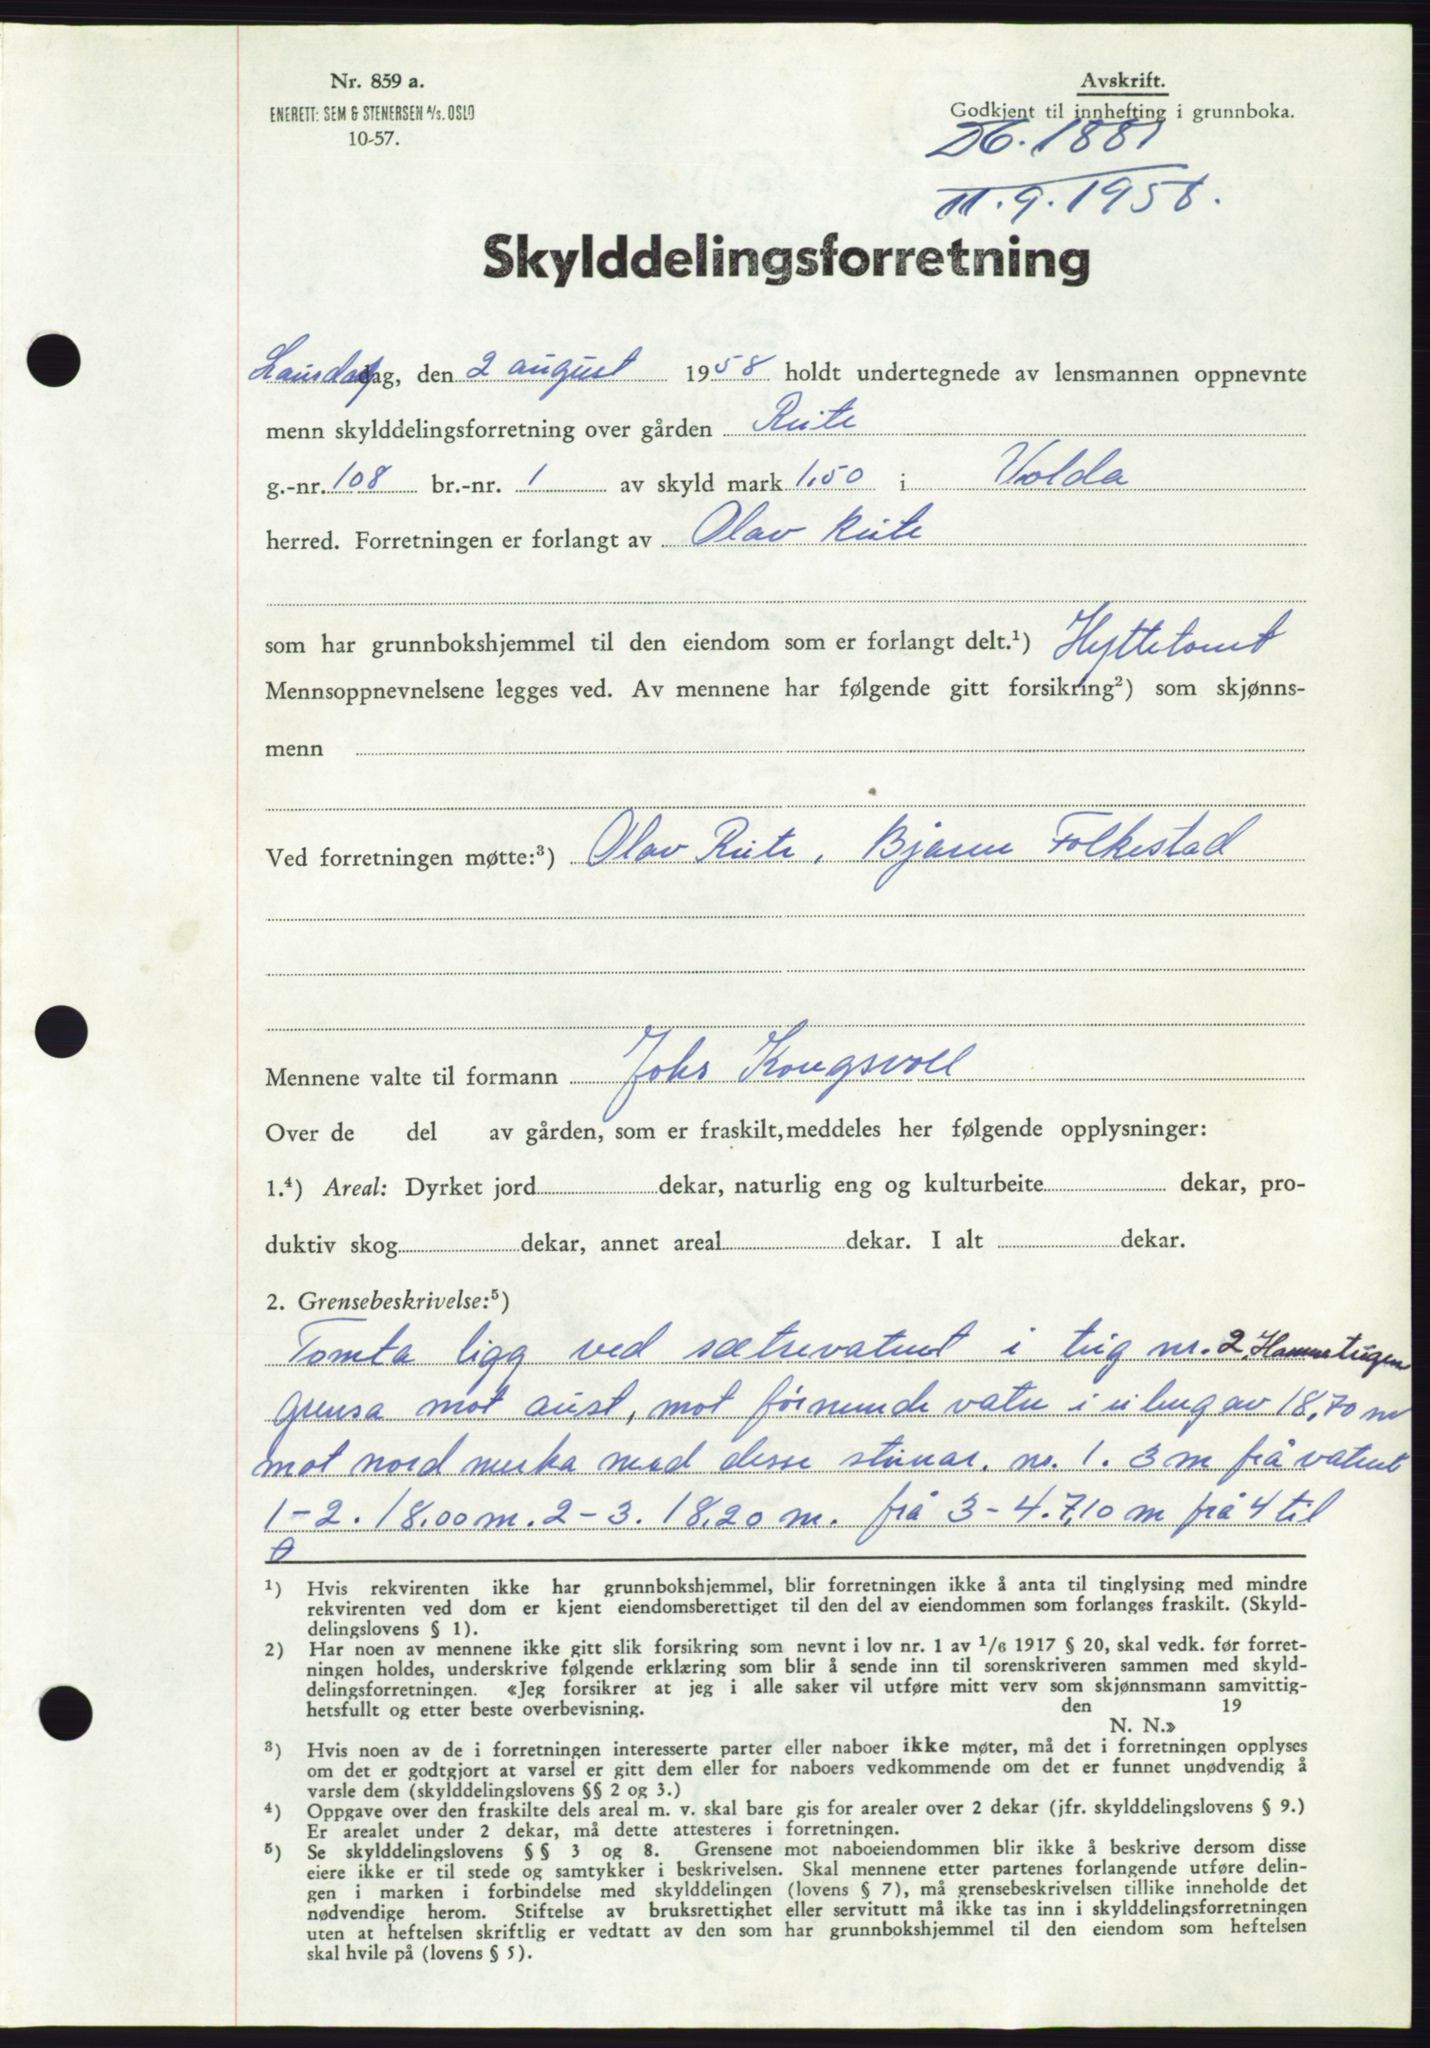 Nr. 859 a.
ENERETT: SEM & STENERSEN A/S. OSLO
10-57.
Avskrift.
Godkjent til innhefting i grunnboka.
Db. 1881
11.9.1958.
Skylddelingsforretning
Laurdag, den 2 august 1958 holdt undertegnede av lensmannen oppnevnte
menn skylddelingsforretning over gården Rute
g.-nr. 108 br.-nr. 1 av skyld mark 1,50 i Volda
herred. Forretningen er forlangt av Olav Rute
som har grunnbokshjemmel til den eiendom som er forlangt delt.¹) Hyttetomt
Mennsoppnevnelsene legges ved. Av mennene har følgende gitt forsikring²) som skjønns-
menn
Ved forretningen møtte:³) Olav Rute, Bjarne Folkestad
Mennene valte til formann Johs Kongsvoll
Over de del av gården, som er fraskilt, meddeles her følgende opplysninger:
1.⁴) Areal: Dyrket jord dekar, naturlig eng og kulturbeite dekar, pro-
duktiv skog dekar, annet areal dekar. I alt dekar.
2. Grensebeskrivelse:⁵)
Tomta ligg ved sætrevatnet i teig nr. 2,
grensa mot aust, mot vatn i ei leng av 18,70 m
mot nord merka med desse steinar. nr. 1. 3 m frå vatnet
1-2. 18.00 m. 2-3. 18,20 m. frå 3-4. 7,10 m frå 4 til
¹) Hvis rekvirenten ikke har grunnbokshjemmel, blir forretningen ikke å anta til tinglysing med mindre
rekvirenten ved dom er kjent eiendomsberettiget til den del av eiendommen som forlanges fraskilt. (Skyld-
delingslovens § 1).
2) Har noen av mennene ikke gitt slik forsikring som nevnt i lov nr. 1 av 1/6 1917 § 20, skal vedk. før forret-
ningen holdes, underskrive følgende erklæring som blir å sende inn til sorenskriveren sammen med skyld-
delingsforretningen. «Jeg forsikrer at jeg i alle saker vil utføre mitt verv som skjønnsmann samvittig-
hetsfullt og etter beste overbevisning. den 19
N. N.»
³) Hvis noen av de i forretningen interesserte parter eller naboer ikke møter, må det i forretningen opplyses
om det er godtgjort at varsel er gitt dem eller for naboers vedkommende om det er funnet unødvendig å
varsle dem (skylddelingslovens §§ 2 og 3.)
⁴) Oppgave over den fraskilte dels areal m. v. skal bare gis for arealer over 2 dekar (jfr. skylddelingslovens § 9.)
Er arealet under 2 dekar, må dette attesteres i forretningen.
⁵) Se skylddelingslovens § § 3 og 8. Grensene mot naboeiendommen blir ikke å beskrive dersom disse
eiere ikke er til stede og samtykker i beskrivelsen. Skal mennene etter partenes forlangende utføre delin-
gen i marken i forbindelse med skylddelingen (lovens § 7), må grensebeskrivelsen tillike inneholde det
nødvendige herom. Stiftelse av bruksrettighet eller servitutt må ikke tas inn i skylddelingsforretningen
uten at heftelsen skriftlig er vedtatt av den som har grunnbokshjemmel til den eiendom som heftelsen
skal hvile på (lovens § 5).